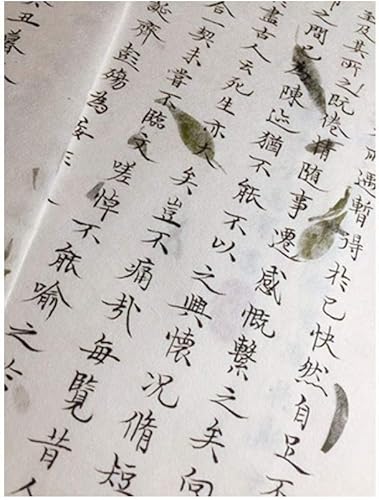 所遇暫得於己快然自足不
至及其所之既倦情隨事遷感慨繫之矣向
之間已陳迹猶不能不以之興懷況脩短
盡古人云死生亦大矣豈不痛哉每覽昔人
合一契未嘗不臨文嗟悼不能喻之於
誕齊彭殤為妄
丑暮